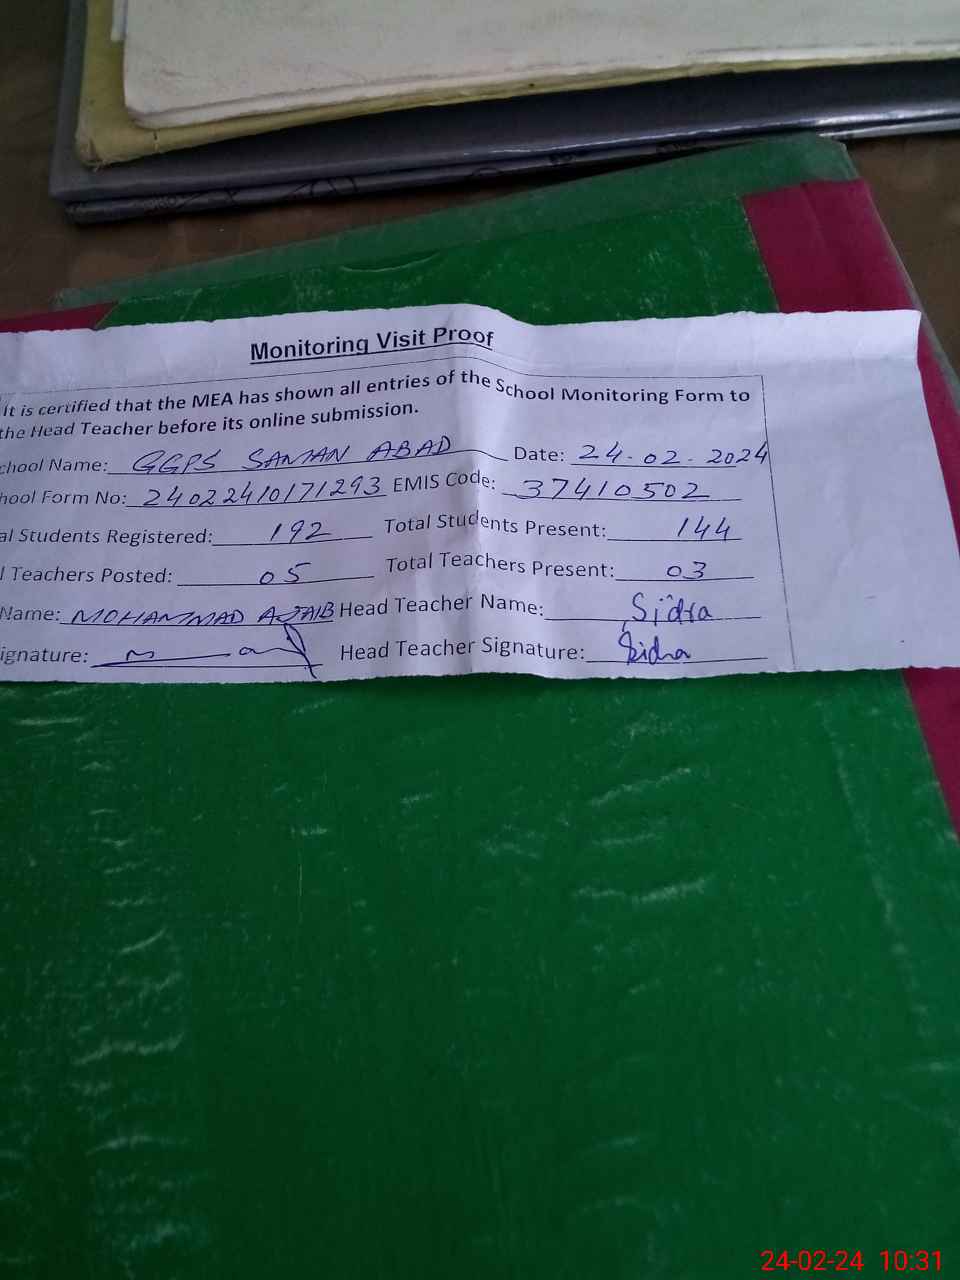 Monitoring Visit Proof
It is certified that the MEA has shown all entries of the School Monitoring Form to
the Head Teacher before its online submission.
chool Name: GGPS SAMAN ABAD Date: 24-02-2024
hool Form No: 24022410171293 EMIS Code: 37410502
al Students Registered: 192 Total Students Present: 144
l Teachers Posted: 05 Total Teachers Present: 03
Name: MOHAMMAD AJAIB Head Teacher Name: Sidra
ignature: Head Teacher Signature: Sidra
24-02-24 10:31